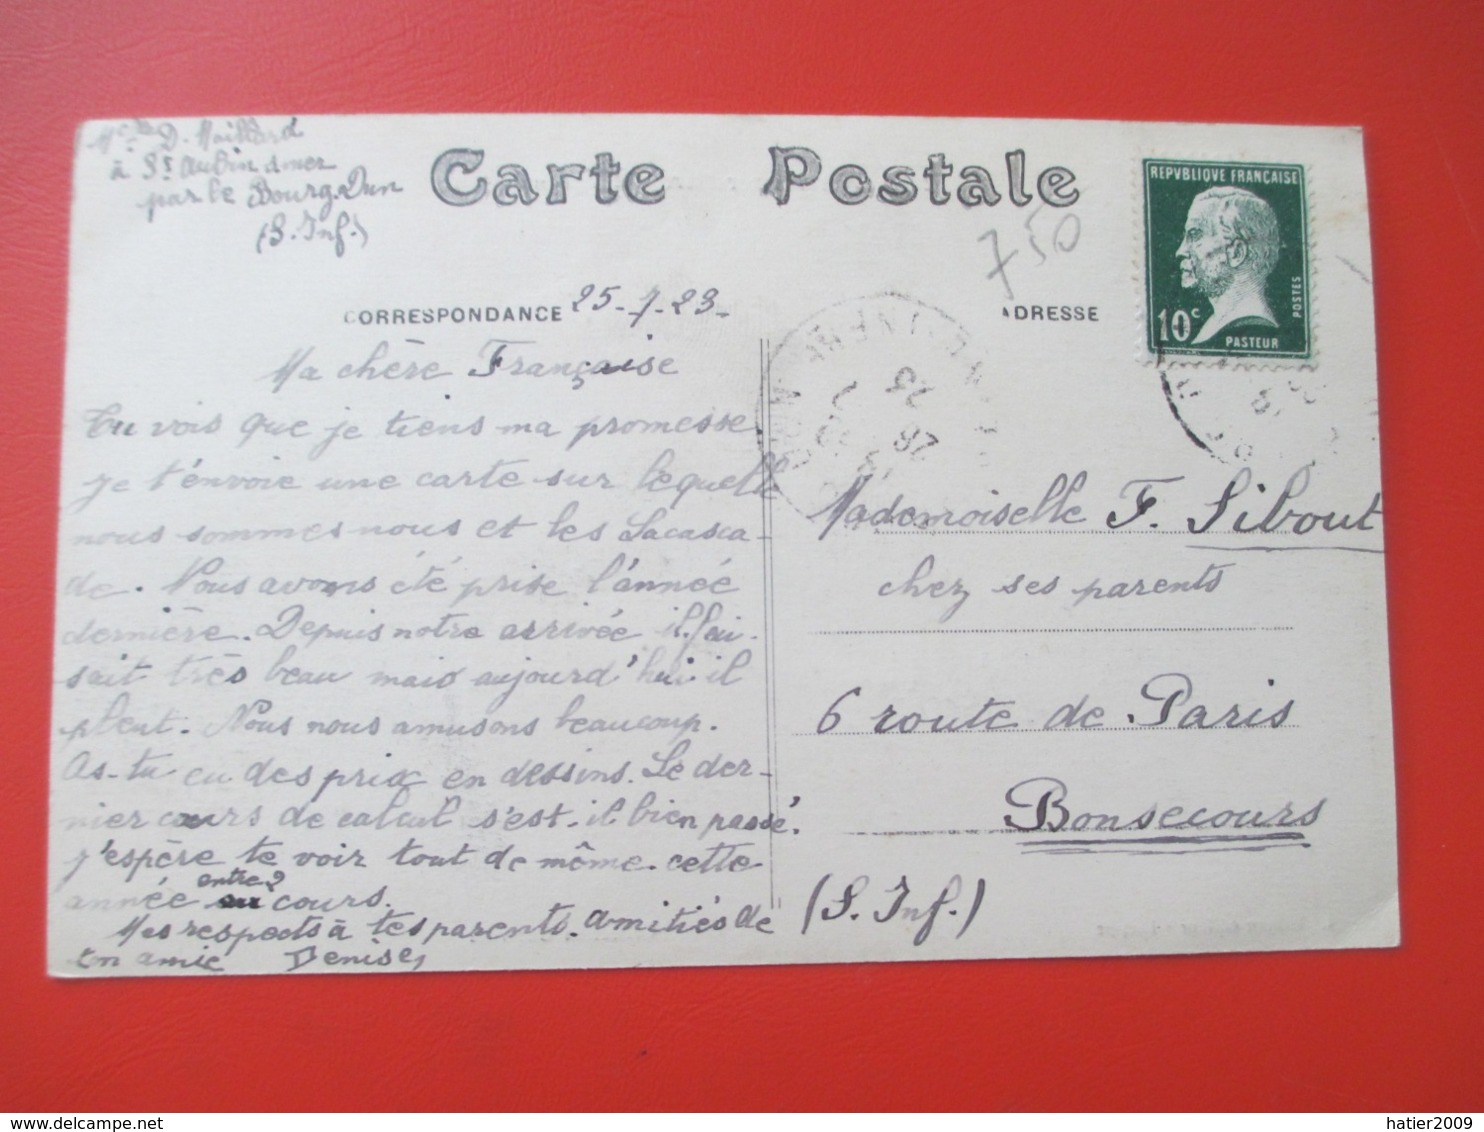 Melle D. Maillard
à St Aubin s mer
par le Bourg. Dun
(S. Inf.)
Carte Postale
750
REPVBLIQVE FRANÇAISE
POSTES
10c
PASTEUR
CORRESPONDANCE 25-7-23-
ADRESSE
Ma chère Française
Tu vois que je tiens ma promesse
je t'envoie une carte sur lequelle
nous sommes nous et les Lacasca-
de. Nous avons été prise l'année
dernière. Depuis notre arrivée il fai-
sait très beau mais aujourd'hui il
pleut. Nous nous amusons beaucoup.
As-tu eu des prix en dessins. Le der-
nier cours de calcul s'est-il bien passé.
J'espère te voir tout de même cette
année entre 2 cours.
Mes respects à tes parents. amitiés de
ton amie Denise,
Mademoiselle F. Sibout
chez ses parents
6 route de Paris
Bonsecours
(S. Inf.)
hatier2009